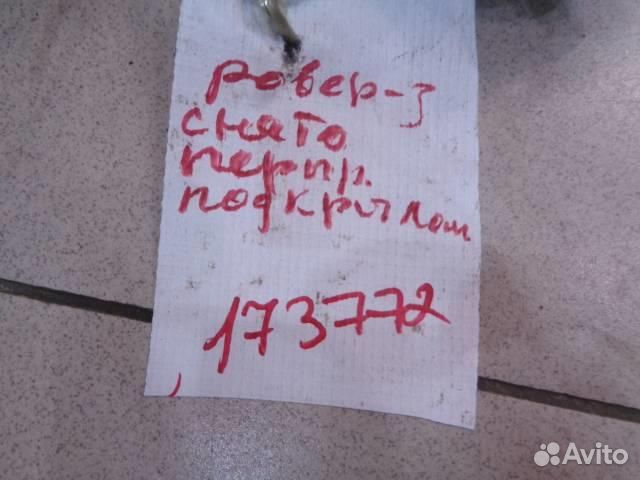 ровер-3
снято
перпр.
под крылом
173772
Avito